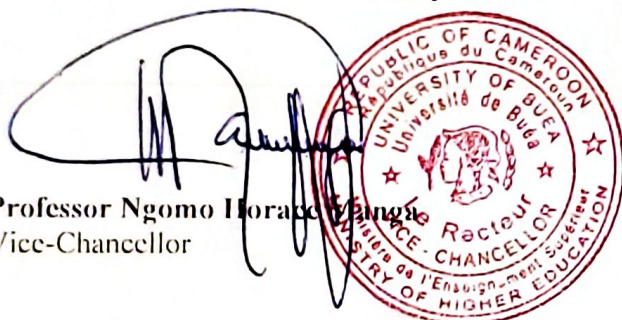 Professor Ngomo Horace Manga
Vice-Chancellor
REPUBLIC OF CAMEROON
République du Cameroun
UNIVERSITY OF BUEA
Université de Buéa
Le Recteur
VICE-CHANCELLOR
Ministère de l'Enseignement Supérieur
MINISTRY OF HIGHER EDUCATION